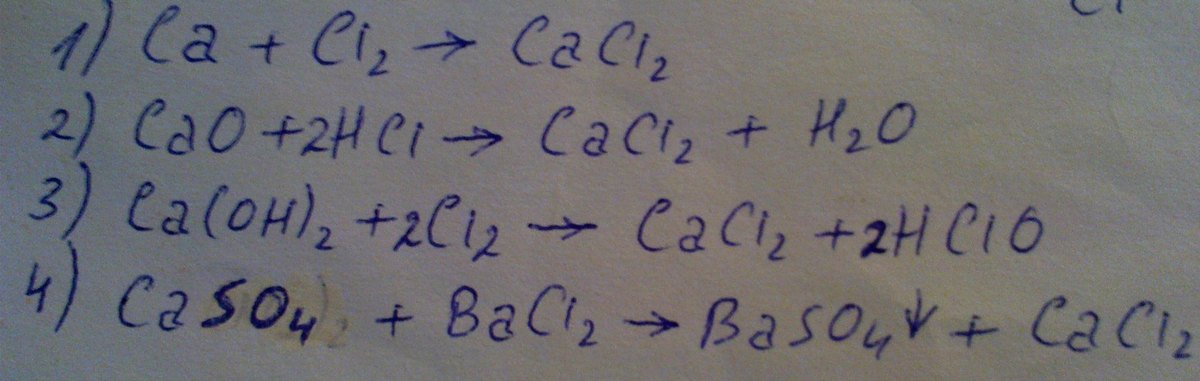 1) Ca + Cl₂ → CaCl₂
2) CaO + 2HCl → CaCl₂ + H₂O
3) Ca(OH)₂ + 2Cl₂ → CaCl₂ + 2HClO
4) CaSO₄ + BaCl₂ → BaSO₄↓ + CaCl₂